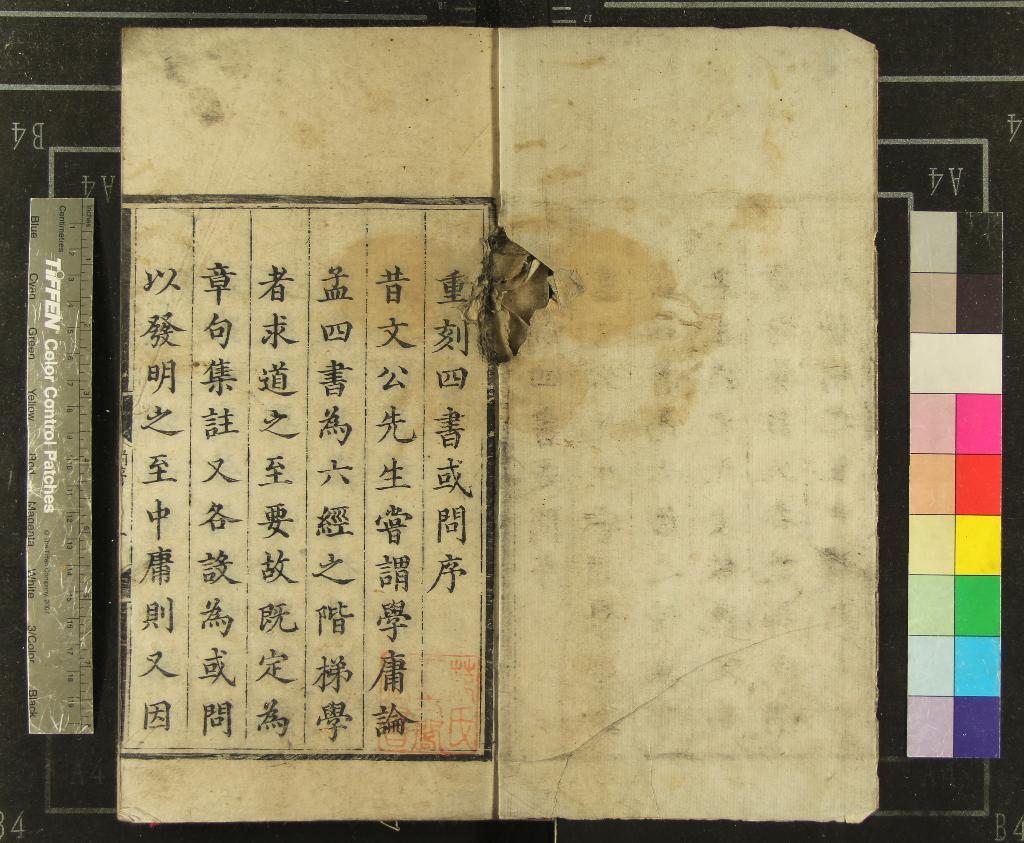 重刻四書或問序
昔文公先生嘗謂學庸論
孟四書為六經之階梯學
者求道之至要故既定為
章句集註又各設為或問
以發明之至中庸則又因
B4
A4
B4
A4
4
A4
A4
B4
Inches
Centimetres
TIFFEN Color Control Patches
© The Tiffen Company, 2007
Blue
Cyan
Green
Yellow
Red
Magenta
White
3/Color
Black